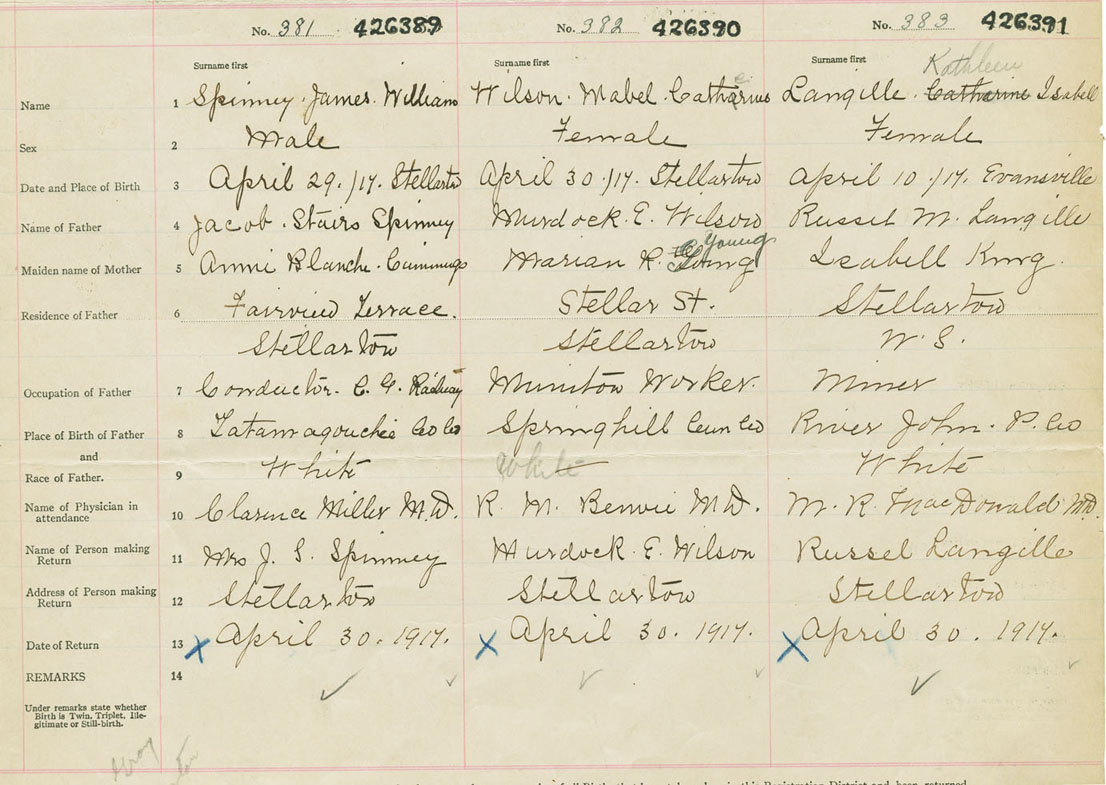 No. 381 426389 No. 382 426390 No. 383 426391
Surname first Surname first Surname first
Kathleen
Name 1 Spinney. James. William Wilson. Mabel. Catharine Langille. Catharine Isabell
Sex 2 Male Female Female
Date and Place of Birth 3 April 29./17. Stellarton April 30./17. Stellarton April 10./17. Evansville
Name of Father 4 Jacob. Stairs Spinney Murdock. E. Wilson Russel M. Langille
Young
Maiden name of Mother 5 Annie Blanche. Cummings Marian R. Isabell King.
Residence of Father 6 Fairview Terrace. Stellar St. Stellarton
Stellarton Stellarton N. S.
Occupation of Father 7 Conductor. C. G. Railway Munition Worker. Miner
Place of Birth of Father 8 Tatamagouche Col Co Springhill Cum Co River John. P. Co
and
Race of Father. 9 White White White
Name of Physician in
attendance 10 Clarence Miller M.D. R. M. Benvie M.D. M. R. MacDonald M.D.
Name of Person making
Return 11 Mrs J. S. Spinney Murdock. E. Wilson Russel Langille
Address of Person making
Return 12 Stellarton Stellarton Stellarton
Date of Return 13 X April 30. 1917. X April 30. 1917. X April 30. 1917.
REMARKS 14
Under remarks state whether
Birth is Twin, Triplet, Ille-
gitimate or Still-birth.
of all Births that have taken place in this Registration District and been returned